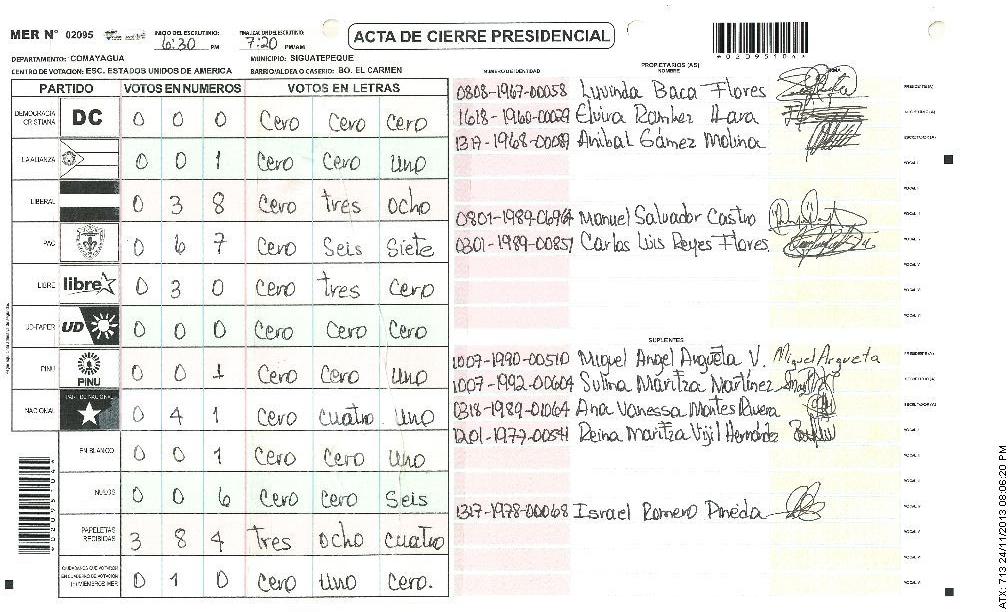 MER N° 02095
INICIO DEL ESCRUTINIO: 6:30 PM
FINALIZACION DEL ESCRUTINIO: 7:20 PM/AM
ACTA DE CIERRE PRESIDENCIAL
DEPARTAMENTO: COMAYAGUA MUNICIPIO: SIGUATEPEQUE
CENTRO DE VOTACION: ESC. ESTADOS UNIDOS DE AMERICA BARRIO/ALDEA O CASERIO: BO. EL CARMEN
PARTIDO VOTOS EN NUMEROS VOTOS EN LETRAS
DEMOCRACIA CRISTIANA DC 0 0 0 Cero Cero Cero
LA ALIANZA 0 0 1 Cero Cero Uno
LIBERAL 0 3 8 Cero tres Ocho
PAC 0 6 7 Cero Seis Siete
LIBRE libre 0 3 0 Cero tres Cero
UD-FAPER UD 0 0 0 Cero Cero Cero
PINU PINU 0 0 1 Cero Cero Uno
NACIONAL 0 4 1 Cero Cuatro Uno
EN BLANCO 0 0 1 Cero Cero Uno
NULOS 0 0 6 Cero Cero Seis
PAPELETAS RECIBIDAS 3 8 4 tres Ocho Cuatro
CIUDADANOS QUE VOTARON EN CUADERNO DE VOTACION (+) MIEMBROS MER 0 1 0 Cero Uno Cero.
*02095104*
PROPIETARIOS (AS)
NUMERO DE IDENTIDAD NOMBRE FIRMA
0808-1967-00058 Luvinda Baca Flores PRESIDENTE(A)
1618-1960-00029 Elvira Ramirez Lara SECRETARIO(A)
1317-1968-00089 Anibal Gámez Molina ESCRUTADOR(A)
VOCAL I
VOCAL II
0801-1989-06964 Manuel Salvador Castro
0301-1989-00857 Carlos Luis Reyes Flores
SUPLENTES
1007-1990-00510 Miguel Angel Argueta V. Miguel Argueta PRESIDENTE(A)
1007-1992-00604 Sulma Maritza Martínez SECRETARIO(A)
0318-1989-01064 Ana Vanessa Montes Rivera ESCRUTADOR(A)
1201-1977-00541 Reina Maritza Vijil Hernández
1317-1978-00068 Israel Romero Pineda
ATX: 713 24/11/2013 08:06:20 PM